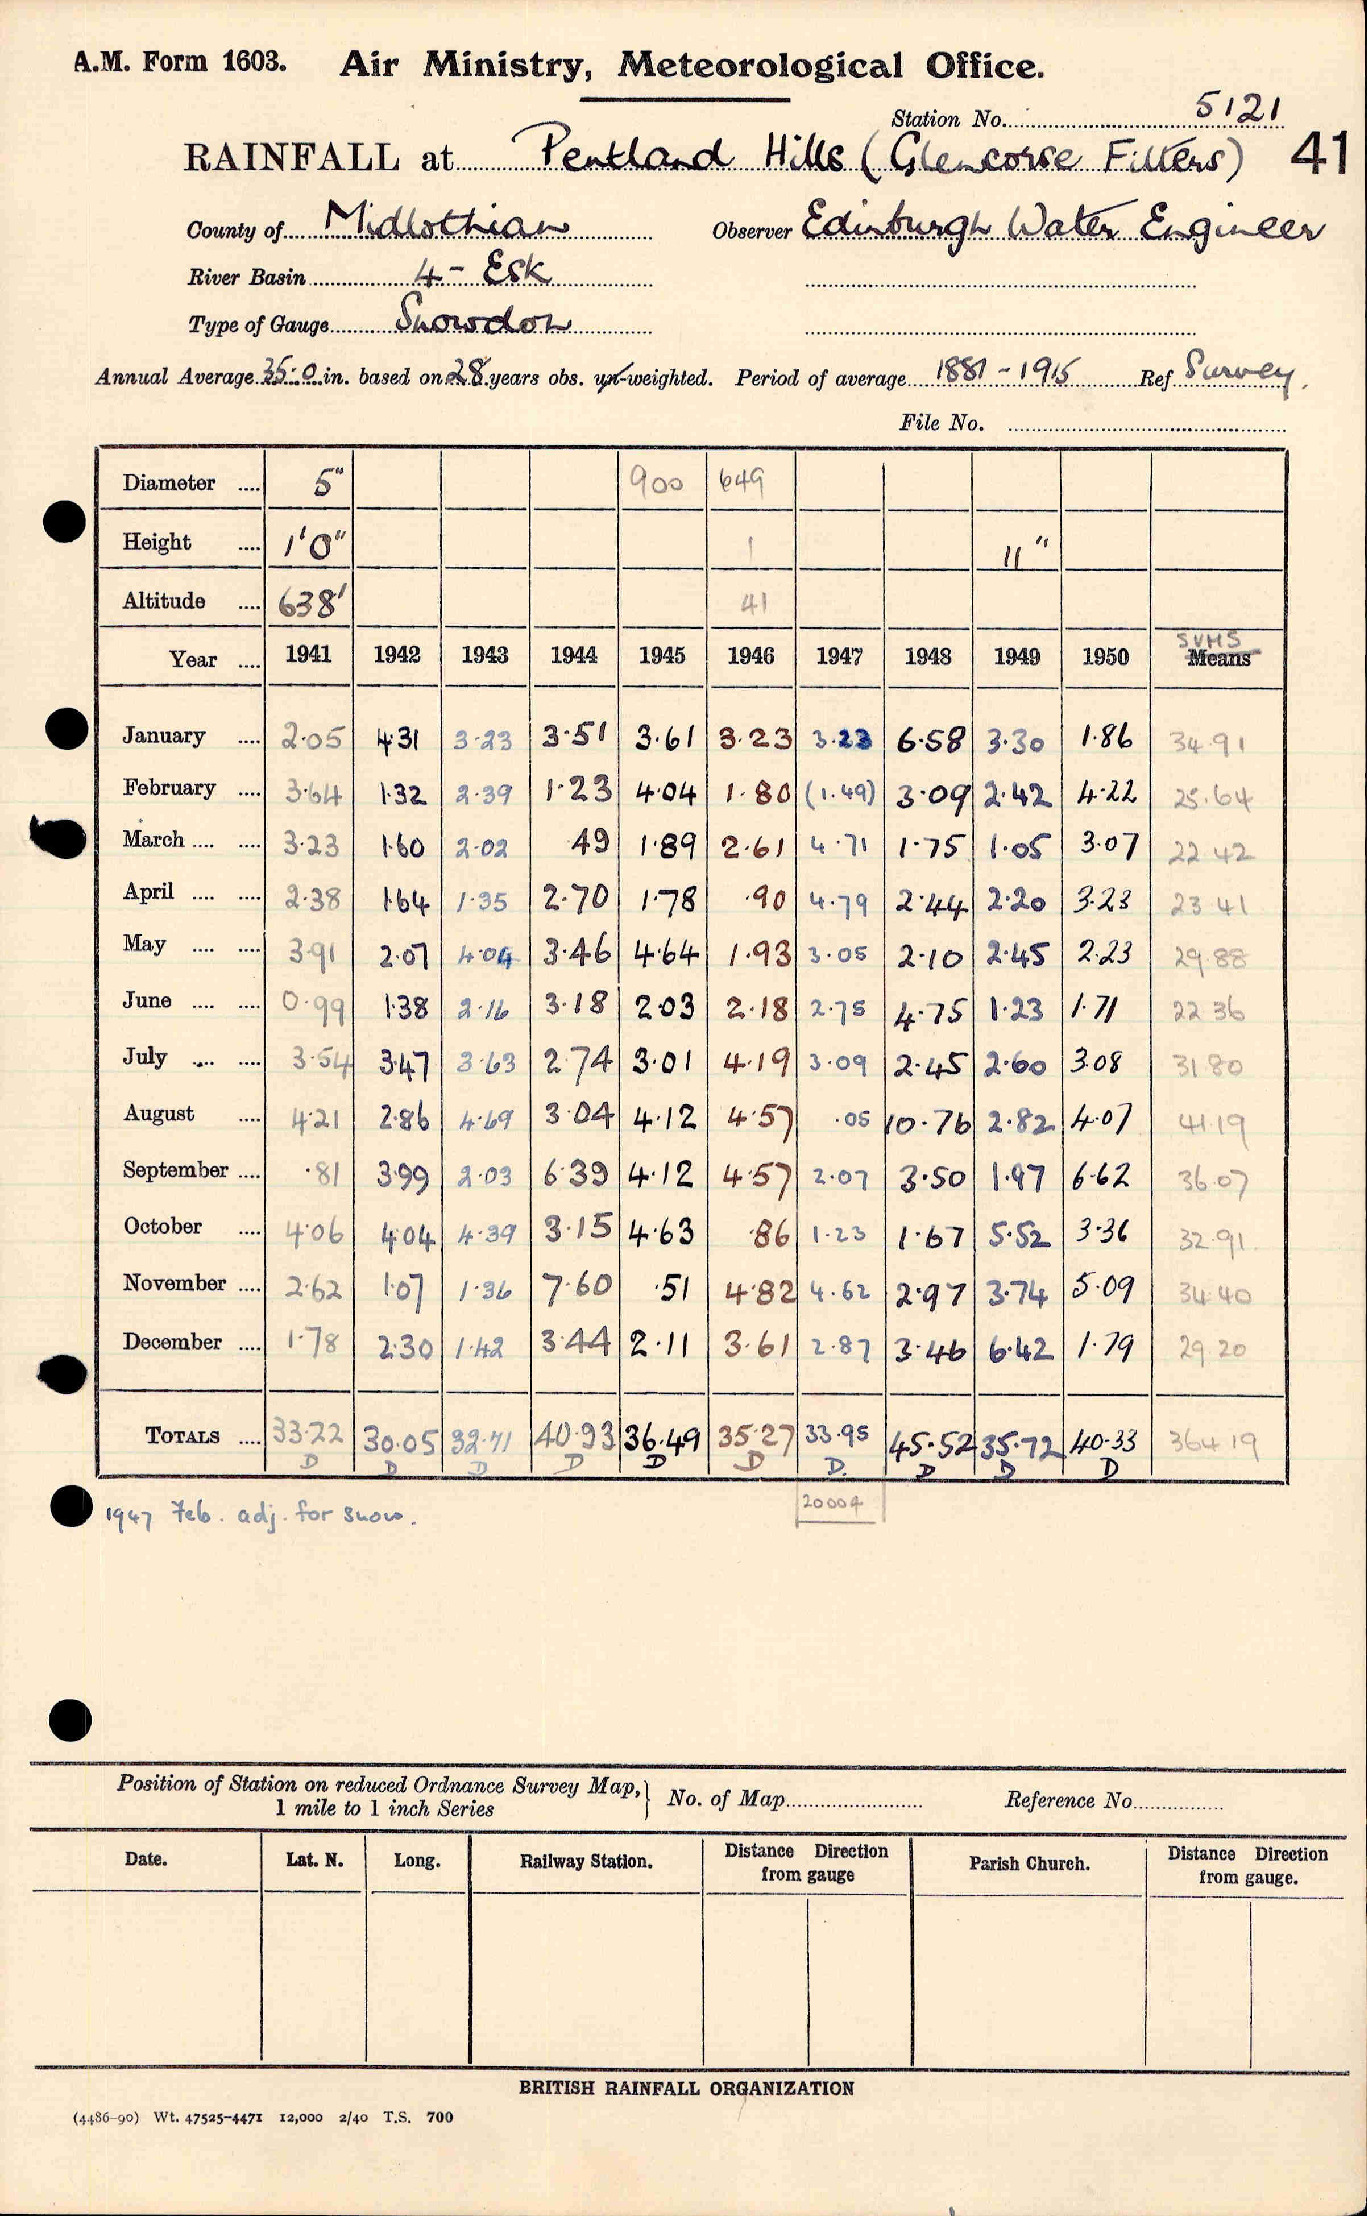 A.M. Form 1603. Air Ministry, Meteorological Office.
Station No. 5121
RAINFALL at Pentland Hills (Glencorse Filters) 41
County of Midlothian Observer Edinburgh Water Engineer
River Basin 4 - Esk
Type of Gauge Snowdon
Annual Average 35.0 in. based on 28 years obs. un-weighted. Period of average 1881 - 1915 Ref Survey.
File No.
Diameter .... 5" 900 649
Height .... 1'0" 1 11"
Altitude .... 638' 41
SUMS
Year .... 1941 1942 1943 1944 1945 1946 1947 1948 1949 1950 Means
January .... 2.05 4.31 3.23 3.51 3.61 3.23 3.23 6.58 3.30 1.86 34.91
February .... 3.64 1.32 2.39 1.23 4.04 1.80 (1.49) 3.09 2.42 4.22 25.64
March .... .... 3.23 1.60 2.02 .49 1.89 2.61 4.71 1.75 1.05 3.07 22.42
April .... .... 2.38 1.64 1.35 2.70 1.78 .90 4.79 2.44 2.20 3.23 23.41
May .... .... 3.91 2.07 4.04 3.46 4.64 1.93 3.05 2.10 2.45 2.23 29.88
June .... .... 0.99 1.38 2.16 3.18 2.03 2.18 2.75 4.75 1.23 1.71 22.36
July .... .... 3.54 3.47 3.63 2.74 3.01 4.19 3.09 2.45 2.60 3.08 31.80
August .... 4.21 2.86 4.69 3.04 4.12 4.57 .05 10.76 2.82 4.07 41.19
September .... .81 3.99 2.03 6.39 4.12 4.57 2.07 3.50 1.97 6.62 36.07
October .... 4.06 4.04 4.39 3.15 4.63 .86 1.23 1.67 5.52 3.36 32.91
November .... 2.62 1.07 1.36 7.60 .51 4.82 4.62 2.97 3.74 5.09 34.40
December .... 1.78 2.30 1.42 3.44 2.11 3.61 2.87 3.46 6.42 1.79 29.20
TOTALS .... 33.22 30.05 32.71 40.93 36.49 35.27 33.95 45.52 35.72 40.33 364.19
D D D D D D D. D D D
20004
1947 Feb. adj. for snow.
Position of Station on reduced Ordnance Survey Map,} No. of Map Reference No.
1 mile to 1 inch Series
Date. Lat. N. Long. Railway Station. Distance Direction from gauge Parish Church. Distance Direction from gauge.
BRITISH RAINFALL ORGANIZATION
(4486-90) Wt. 47525-4471 12,000 2/40 T.S. 700